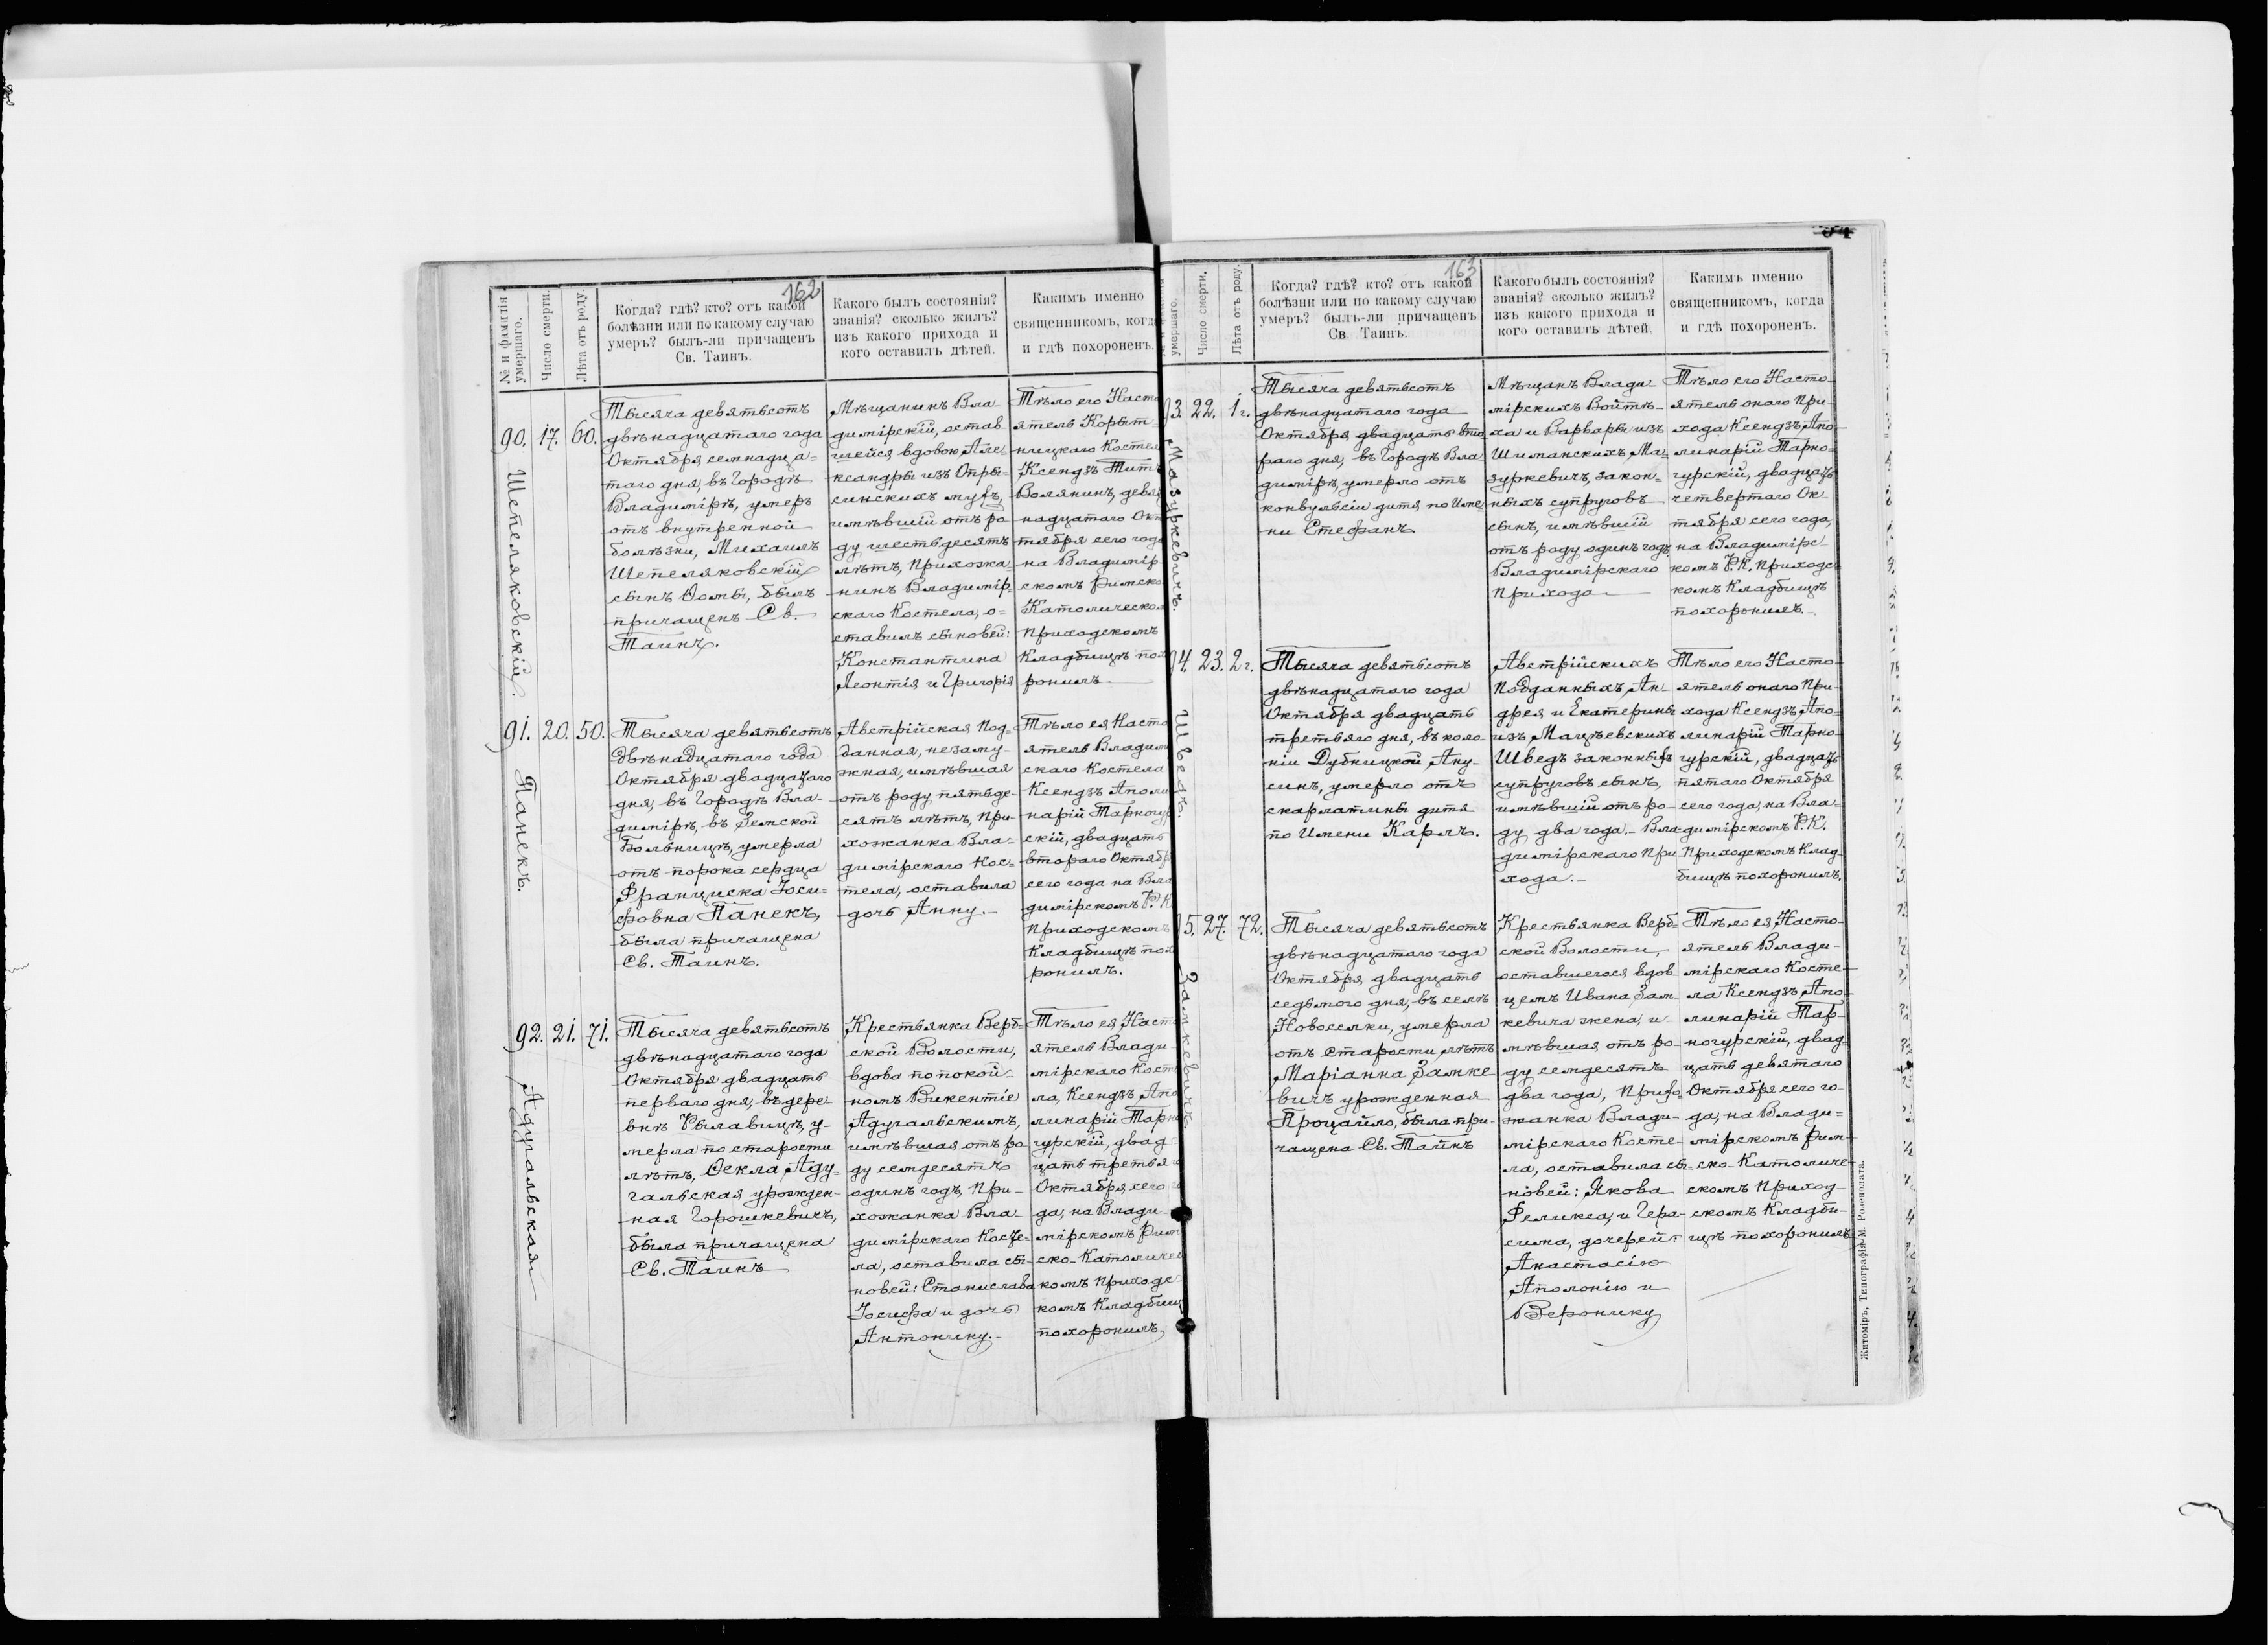 162
№ и фамилія
умершаго.
Число смерти.
Лѣта отъ роду.
Когда? гдѣ? кто? отъ какой
болѣзни или по какому случаю
умеръ? былъ-ли причащенъ
Св. Таинъ.
Какого былъ состоянія?
званія? сколько жилъ?
изъ какого прихода и
кого оставилъ дѣтей.
Какимъ именно
священникомъ, когд
и гдѣ похороненъ.
90.
Шепеляковскій.
17.
60.
Тысяча девятьсотъ
двѣнадцатаго года
Октября семнадца=
таго дня, въ Городѣ
Владимірѣ, умеръ
отъ внутренной
болѣзни, Михаилъ
Шепеляковскій
сынъ Ѳомы, былъ
причащенъ Св.
Таинъ.
Мѣщанинъ Вла
димірскій, остав
шейся вдовою Але-
ксандры изъ Опры-
синскихъ мужъ,
имѣвшій отъ ро
ду шестьдесятъ
лѣтъ, Прихожа-
нинъ Владимір-
скаго Костела, о=
ставилъ сыновей:
Константина
Леонтія и Григорія
Тѣло его Насто
ятель Корыт-
ницкаго Костел
Ксендзъ Тит
Волянинъ, девят
надцатаго Ок
тября сего года
на Владимір
скомъ Римско
Католическом
Приходскомъ
Кладбищѣ пох
ронилъ
91.
Панекъ.
20.
50.
Тысяча девятьсотъ
двѣнадцатаго года
Октября двадцатаго
дня, въ Городѣ Вла-
димірѣ, въ Земской
Больницѣ, умерла
отъ порока сердца
Франциска Іоси-
фовна Панекъ,
была причащена
Св. Таинъ.
Австрійская Под-
данная, незаму-
жная, имѣвшая
отъ роду пятьде-
сятъ лѣтъ, При-
хожанка Вла-
димірскаго Кос-
тела, оставила
дочь Анну.-
Тѣло ея Насто
ятель Владимі
скаго Костела
Ксендзъ Аполи
нарій Тарногур
скій, двадцать
втораго Октябр
сего года на Вла
димірскомъ Р. К
Приходскомъ
Кладбищѣ пох
ронилъ.
92.
Адугальская
21.
71.
Тысяча девятьсотъ
двѣнадцатаго года
Октября двадцать
перваго дня, въ дере
внѣ Рылавицѣ, у-
мерла по старости
лѣтъ, Ѳекла Аду-
гальская урожден-
ная Горошкевичъ,
была причащена
Св. Таинъ
Крестьянка Верб=
ской Волости,
вдова по покой-
номъ Викентіе
Адугальскимъ,
имѣвшая отъ ро
ду семдесятъ
одинъ годъ, При-
хожанка Вла-
димірскаго Косте-
ла, оставила сы-
новей: Станислава
Іосифа и дочь
Антонину.-
Тѣло ея Наст
ятель Влади
мірскаго Кост
ла, Ксендзъ Апо
линарій Тарно
гурскій, двад
цать третьяго
Октября сего го
да, на Влади-
мірскомъ Рим
ско-Католичес
комъ Приходс
комъ Кладбищ
похоронилъ.
163
умершаго.
Число смерти.
Лѣта отъ роду.
Когда? гдѣ? кто? отъ какой
болѣзни или по какому случаю
умеръ? былъ-ли причащенъ
Св Таинъ.
Какого былъ состоянія?
званія? сколько жилъ?
изъ какого прихода и
кого оставилъ дѣтей.
Какимъ именно
священникомъ, когда
и гдѣ похороненъ.
93.
Мазуркевичъ.
22.
1 г.
Тысяча девятьсотъ
двѣнадцатаго года
Октября двадцать вто
раго дня, въ Городѣ Вла
димірѣ, умерло отъ
конвульсіи дитя по Име-
ни Стефанъ
Мѣщанъ Влади-
мірскихъ Войтѣ-
ха и Варвары изъ
Шиманскихъ Ма-
зуркевичъ, закон=
ныхъ супруговъ
сынъ, имѣвшій
отъ роду одинъ годъ
Владимірскаго
Прихода
Тѣло его Насто-
ятель онаго При-
хода Ксендзъ Апо-
линарій Тарно=
гурскій, двадцать
четвертаго Ок
тября сего года,
на Владимірс-
комъ Р.К. Приходс
комъ Кладбищѣ
похоронилъ.
94.
Шведъ.
23.
2 г.
Тысяча девятьсотъ
двѣнадцатаго года
Октября двадцать
третьяго дня, въ коло-
ніи Дубницкой, Ану-
синъ, умерло отъ
скарлатины дитя
по Имени Карлъ.
Австрійскихъ
Подданныхъ, Ан-
дрея и Екатерины
изъ Мацѣевскихъ
Шведъ законныхъ
супруговъ сынъ,
имѣвшій отъ ро-
ду два года.- Вла-
димірскаго При
хода.-
Тѣло его Насто-
ятель онаго При-
хода Ксендзъ, Апо=
линарій Тарно-
гурскій, двадцать
пятаго Октября
сего года, на Вла=
димірскомъ Р.К.
Приходскомъ Клад-
бищѣ похоронилъ.
5.
Замкевичъ
27.
72.
Тысяча девятьсотъ
двѣнадцатаго года
Октября, двадцать
седьмого дня, въ селѣ
Новоселки, умерла
отъ старости лѣтъ
Маріанна Замке
вичъ урожденная
Процайло, была при-
чащена Св. Таинъ
Крестьянка Верб-
ской Волости,
оставшегося вдов-
цемъ Ивана Зам-
кевича жена, и-
мѣвшая отъ ро-
ду семдесятъ
два года, Прихо
жанка Влади-
мірскаго Косте-
ла, оставила сы-
новей: Якова
Феликса, и Гера-
сима, дочерей:
Анастасію
Аполонію и
Веронику
Тѣло ея, Насто-
ятель Влади-
мірскаго Косте-
ла Ксендзъ, Апо-
линарій Тар-
ногурскій, двад-
цать девятаго
Октября сего го-
да, на Влади=
мірскомъ Рим-
ско-Католиче-
скомъ Приход-
скомъ Кладби-
щѣ похоронилъ
Житоміръ, Типографія М. Розенблата.